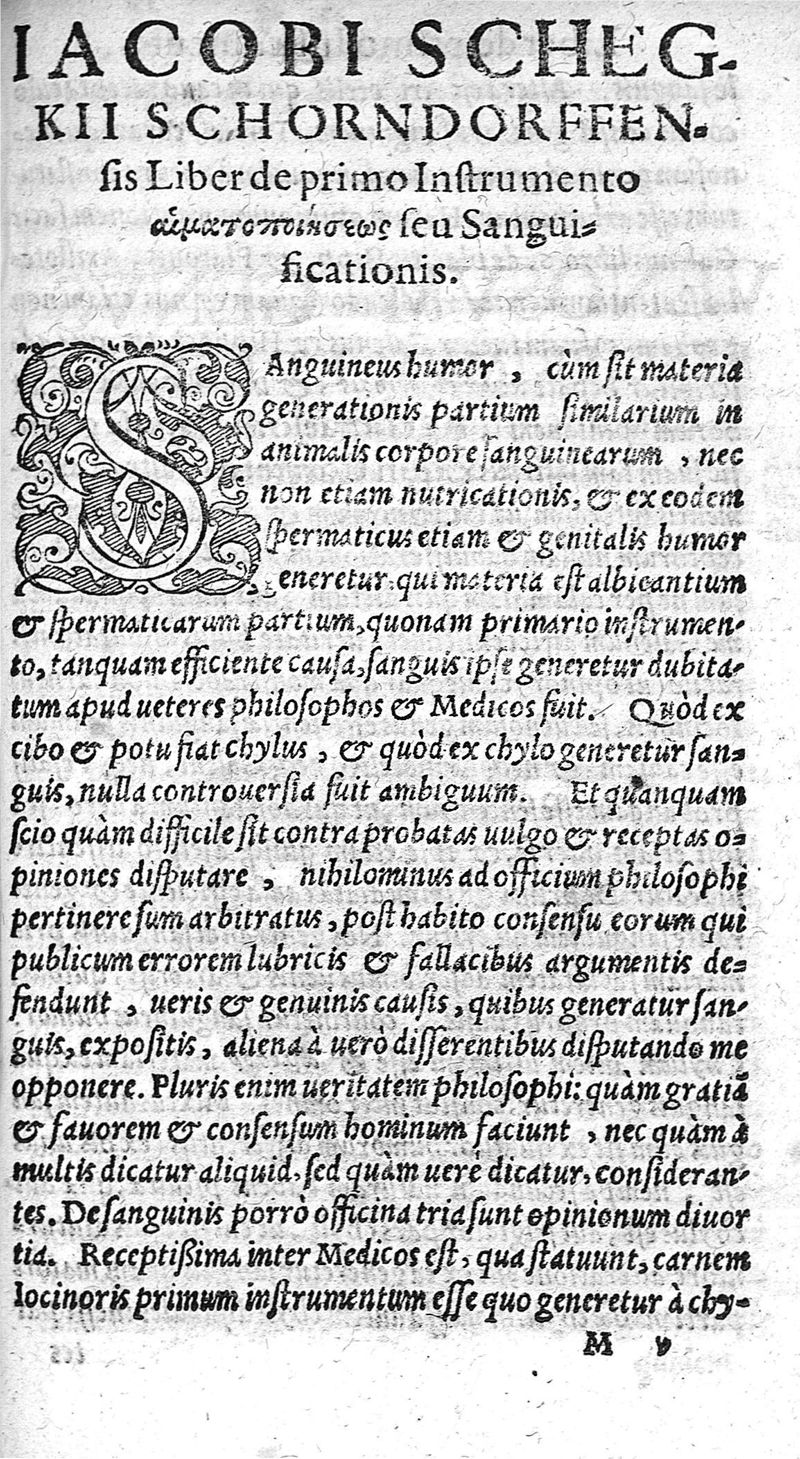 IACOBI SCHEG-
KII SCHORNDORFFEN-
sis Liber de primo Instrumento
αἱματοποιήσεως seu Sangui-
ficationis.
SAnguineus humor, cùm sit materia
generationis partium similarium in
animalis corpore sanguinearum, nec
non etiam nutricationis, & ex eodem
spermaticus etiam & genitalis humor
generetur, qui materia est albicantium
& spermaticarum partium, quonam primario instrumen-
to, tanquam efficiente causa, sanguis ipse generetur dubita-
tum apud ueteres philosophos & Medicos fuit. Quòd ex
cibo & potu fiat chylus, & quòd ex chylo generetur san-
guis, nulla controuersia fuit ambiguum. Et quanquam
scio quàm difficile sit contra probatas uulgo & receptas o-
piniones disputare, nihilominus ad officium philosophi
pertinere sum arbitratus, posthabito consensu eorum qui
publicum errorem lubricis & fallacibus argumentis de-
fendunt, ueris & genuinis causis, quibus generatur san-
guis, expositis, aliena à uerò differentibus disputando me
opponere. Pluris enim ueritatem philosophi: quàm gratiã
& fauorem & consensum hominum faciunt, nec quàm à
multis dicatur aliquid, sed quàm uerè dicatur, consideran-
tes. De sanguinis porrò officina tria sunt opinionum diuor
tia. Receptißima inter Medicos est, qua statuunt, carnem
Iocinoris primum instrumentum esse quo generetur à chy-
M v